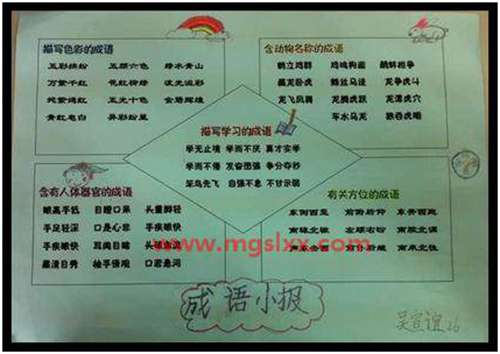 描写色彩的成语
五彩缤纷 五颜六色 绿水青山
万紫千红 花红柳绿 流光溢彩
姹紫嫣红 五光十色 金碧辉煌
青红皂白 异彩纷呈
含动物名称的成语
鹤立鸡群 鸡鸣狗盗 鹬蚌相争
藏龙卧虎 蛛丝马迹 龙争虎斗
龙飞凤舞 龙腾虎跃 龙潭虎穴
车水马龙 狼吞虎咽
描写学习的成语
学无止境 学而不厌 真才实学
学而不倦 发奋图强 争分夺秒
笨鸟先飞 自强不息 不甘示弱
含有人体器官的成语
眼高手低 目瞪口呆 头重脚轻
手足情深 口是心非 手疾眼快
手疾眼快 耳闻目睹
眉清目秀 口若悬河
有关方位的成语
东倒西歪 前俯后仰 东奔西跑
南辕北辙 左顾右盼 南腔北调
南来北往
www.mgslxx.com
成语小报
吴宣谊26